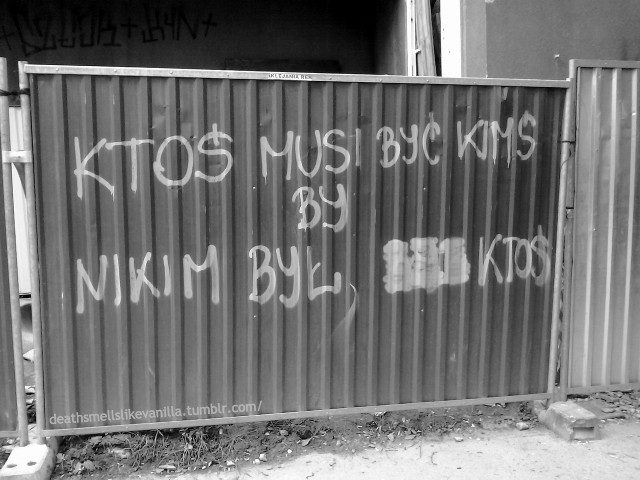 KTOŚ MUSI BYĆ KIMŚ
BY
NIKIM BYŁ, KTOŚ
deathsmellslikevanilla.tumblr.com/